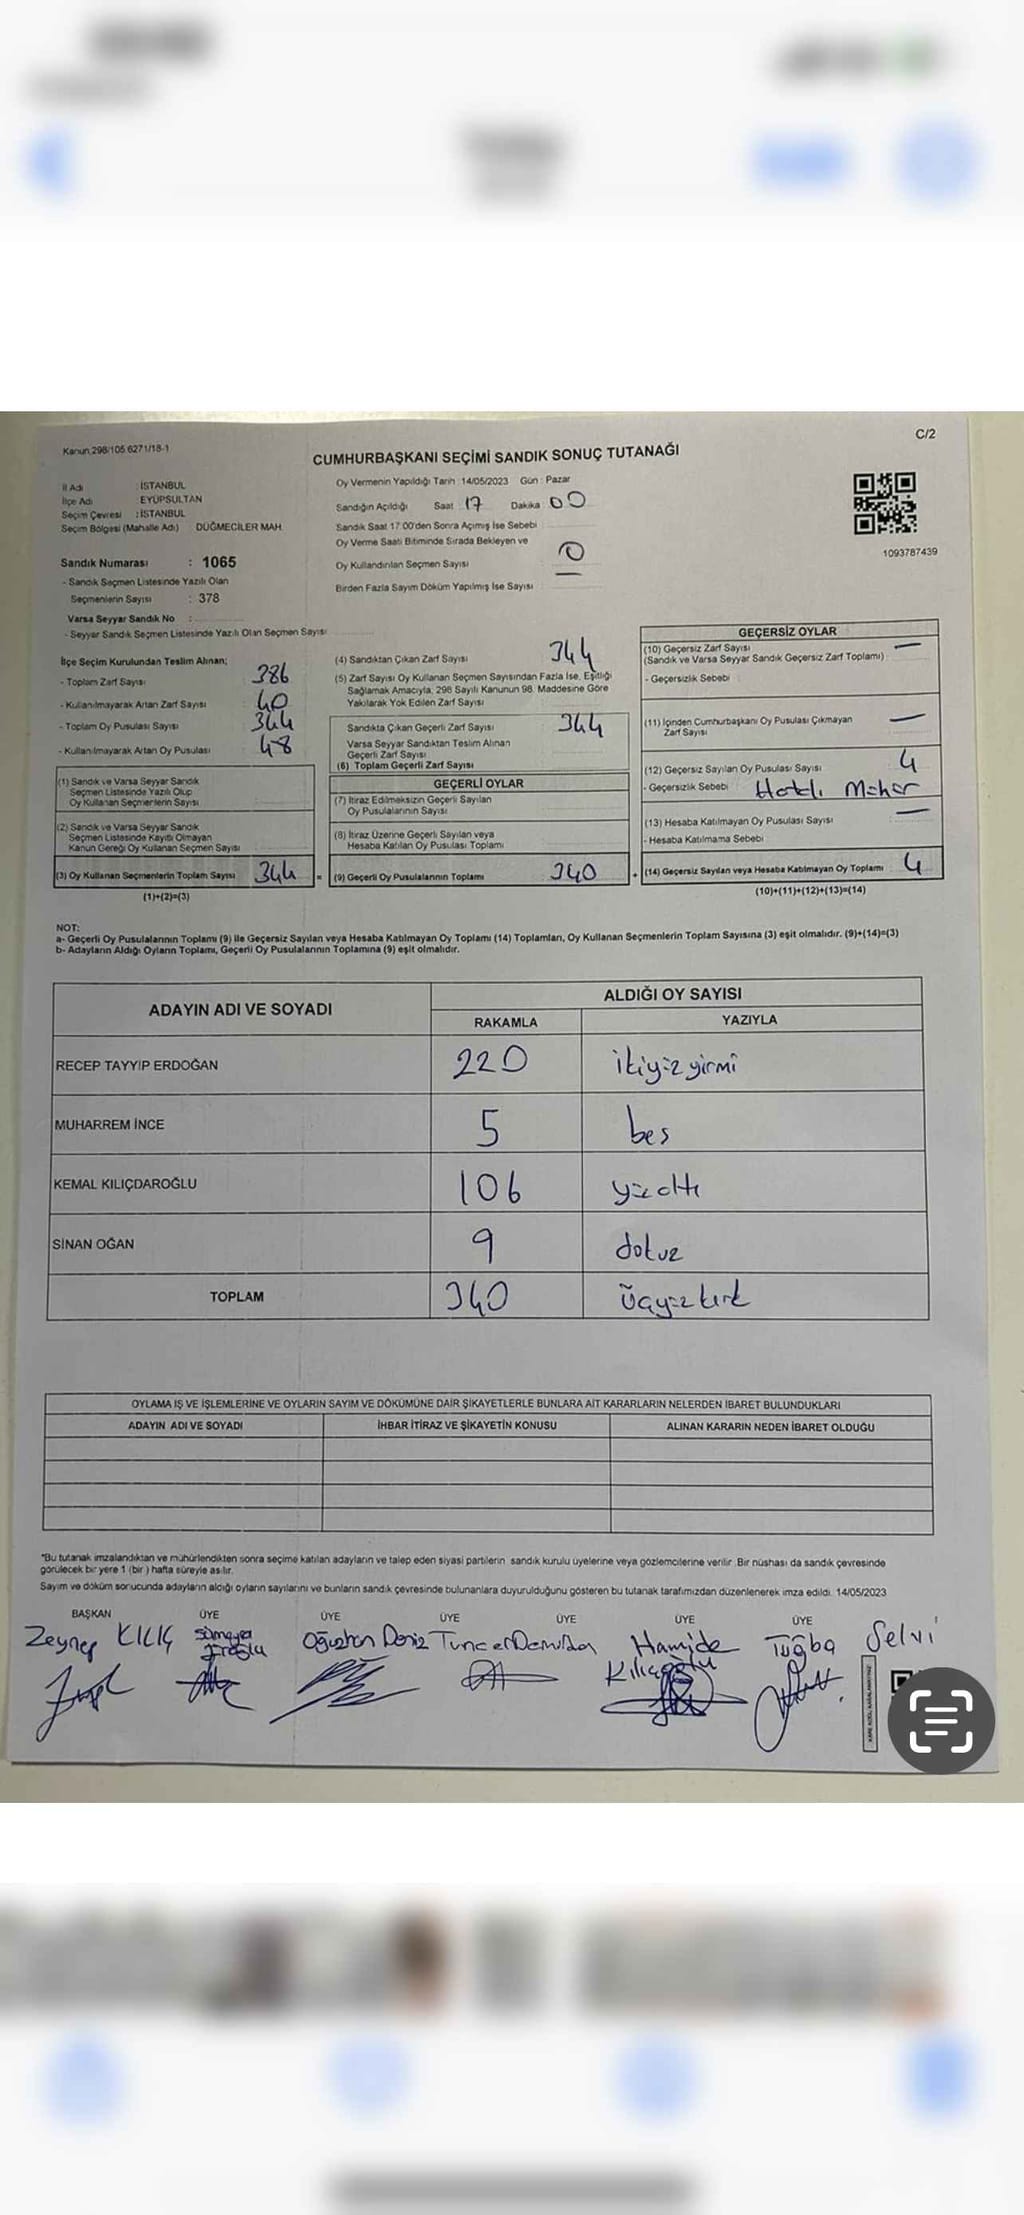 Kanun 298/105 6271/18-1
C/2
CUMHURBAŞKANI SEÇİMİ SANDIK SONUÇ TUTANAĞI
İl Adı : İSTANBUL
İlçe Adı : EYÜPSULTAN
Seçim Çevresi : İSTANBUL
Seçim Bölgesi (Mahalle Adı) DÜĞMECİLER MAH.
Oy Vermenin Yapıldığı Tarih : 14/05/2023 Gün : Pazar
Sandığın Açıldığı Saat : 17 Dakika 00
Sandık Saat 17:00'den Sonra Açımış İse Sebebi
Oy Verme Saati Bitiminde Sırada Bekleyen ve
Oy Kullandırılan Seçmen Sayısı 0
Birden Fazla Sayım Döküm Yapılmış İse Sayısı
1093787439
Sandık Numarası : 1065
- Sandık Seçmen Listesinde Yazılı Olan
Seçmenlerin Sayısı : 378
Varsa Seyyar Sandık No :
- Seyyar Sandık Seçmen Listesinde Yazılı Olan Seçmen Sayısı
İlçe Seçim Kurulundan Teslim Alınan;
- Toplam Zarf Sayısı 386
- Kullanılmayarak Artan Zarf Sayısı 40
- Toplam Oy Pusulası Sayısı 344
- Kullanılmayarak Artan Oy Pusulası 48
(1) Sandık ve Varsa Seyyar Sandık
Seçmen Listesinde Yazılı Olup
Oy Kullanan Seçmenlerin Sayısı
(2) Sandık ve Varsa Seyyar Sandık
Seçmen Listesinde Kayıtlı Olmayan
Kanun Gereği Oy Kullanan Seçmen Sayısı
(3) Oy Kullanan Seçmenlerin Toplam Sayısı 344
(1)+(2)=(3)
(4) Sandıktan Çıkan Zarf Sayısı 344
(5) Zarf Sayısı Oy Kullanan Seçmen Sayısından Fazla İse, Eşitliği
Sağlamak Amacıyla, 298 Sayılı Kanunun 98. Maddesine Göre
Yakılarak Yok Edilen Zarf Sayısı
Sandıkta Çıkan Geçerli Zarf Sayısı 344
Varsa Seyyar Sandıktan Teslim Alınan
Geçerli Zarf Sayısı
(6) Toplam Geçerli Zarf Sayısı
GEÇERLİ OYLAR
(7) İtiraz Edilmeksizin Geçerli Sayılan
Oy Pusulalarının Sayısı
(8) İtiraz Üzerine Geçerli Sayılan veya
Hesaba Katılan Oy Pusulası Toplamı
= (9) Geçerli Oy Pusulalarının Toplamı 340
GEÇERSİZ OYLAR
(10) Geçersiz Zarf Sayısı —
(Sandık ve Varsa Seyyar Sandık Geçersiz Zarf Toplamı)
- Geçersizlik Sebebi
(11) İçinden Cumhurbaşkanı Oy Pusulası Çıkmayan —
Zarf Sayısı
(12) Geçersiz Sayılan Oy Pusulası Sayısı 4
- Geçersizlik Sebebi Hatalı Mühür
(13) Hesaba Katılmayan Oy Pusulası Sayısı —
- Hesaba Katılmama Sebebi
+ (14) Geçersiz Sayılan veya Hesaba Katılmayan Oy Toplamı 4
(10)+(11)+(12)+(13)=(14)
NOT:
a- Geçerli Oy Pusulalarının Toplamı (9) ile Geçersiz Sayılan veya Hesaba Katılmayan Oy Toplamı (14) Toplamları, Oy Kullanan Seçmenlerin Toplam Sayısına (3) eşit olmalıdır. (9)+(14)=(3)
b- Adayların Aldığı Oyların Toplamı, Geçerli Oy Pusulalarının Toplamına (9) eşit olmalıdır.
ADAYIN ADI VE SOYADI
ALDIĞI OY SAYISI
RAKAMLA YAZIYLA
RECEP TAYYİP ERDOĞAN 220 ikiyüz yirmi
MUHARREM İNCE 5 bes
KEMAL KILIÇDAROĞLU 106 yüzaltı
SİNAN OĞAN 9 dokuz
TOPLAM 340 üçyüz kırk
OYLAMA İŞ VE İŞLEMLERİNE VE OYLARIN SAYIM VE DÖKÜMÜNE DAİR ŞİKAYETLERLE BUNLARA AİT KARARLARIN NELERDEN İBARET BULUNDUKLARI
ADAYIN ADI VE SOYADI İHBAR İTİRAZ VE ŞİKAYETİN KONUSU ALINAN KARARIN NEDEN İBARET OLDUĞU
*Bu tutanak imzalandıktan ve mühürlendikten sonra seçime katılan adayların ve talep eden siyasi partilerin sandık kurulu üyelerine veya gözlemcilerine verilir. Bir nüshası da sandık çevresinde
görülecek bir yere 1 (bir ) hafta süreyle asılır.
Sayım ve döküm sonucunda adayların aldığı oyların sayılarını ve bunların sandık çevresinde bulunanlara duyurulduğunu gösteren bu tutanak tarafımızdan düzenlenerek imza edildi. 14/05/2023
BAŞKAN ÜYE ÜYE ÜYE ÜYE ÜYE ÜYE
Zeynep KILIÇ Sümeyye Oğuzhan Deniz Tuncer Hamide Tuğba Selvi